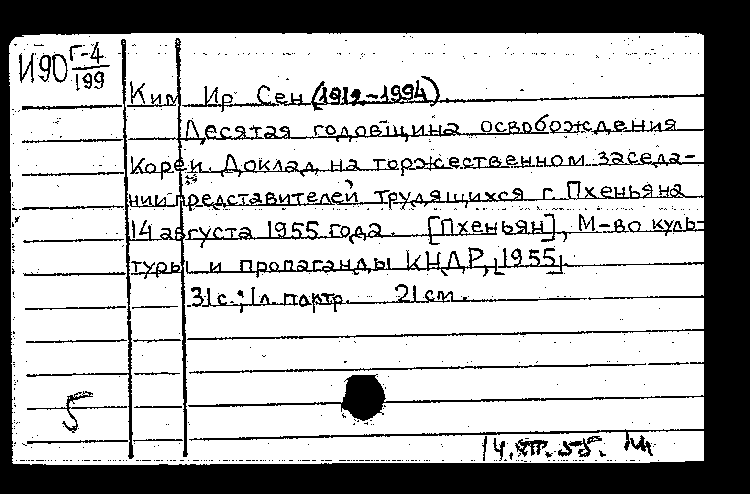 И90 Г-4
199
Ким Ир Сен (1912-1994).
Десятая годовщина освобождения
Кореи. Доклад на торжественном заседа-
нии представителей трудящихся г. Пхеньяна
14 августа 1955 года. [Пхеньян], М-во куль-
туры и пропаганды КНДР, [1955].
31 с.; 1 л. партр. 21 см.
5
14. 55.